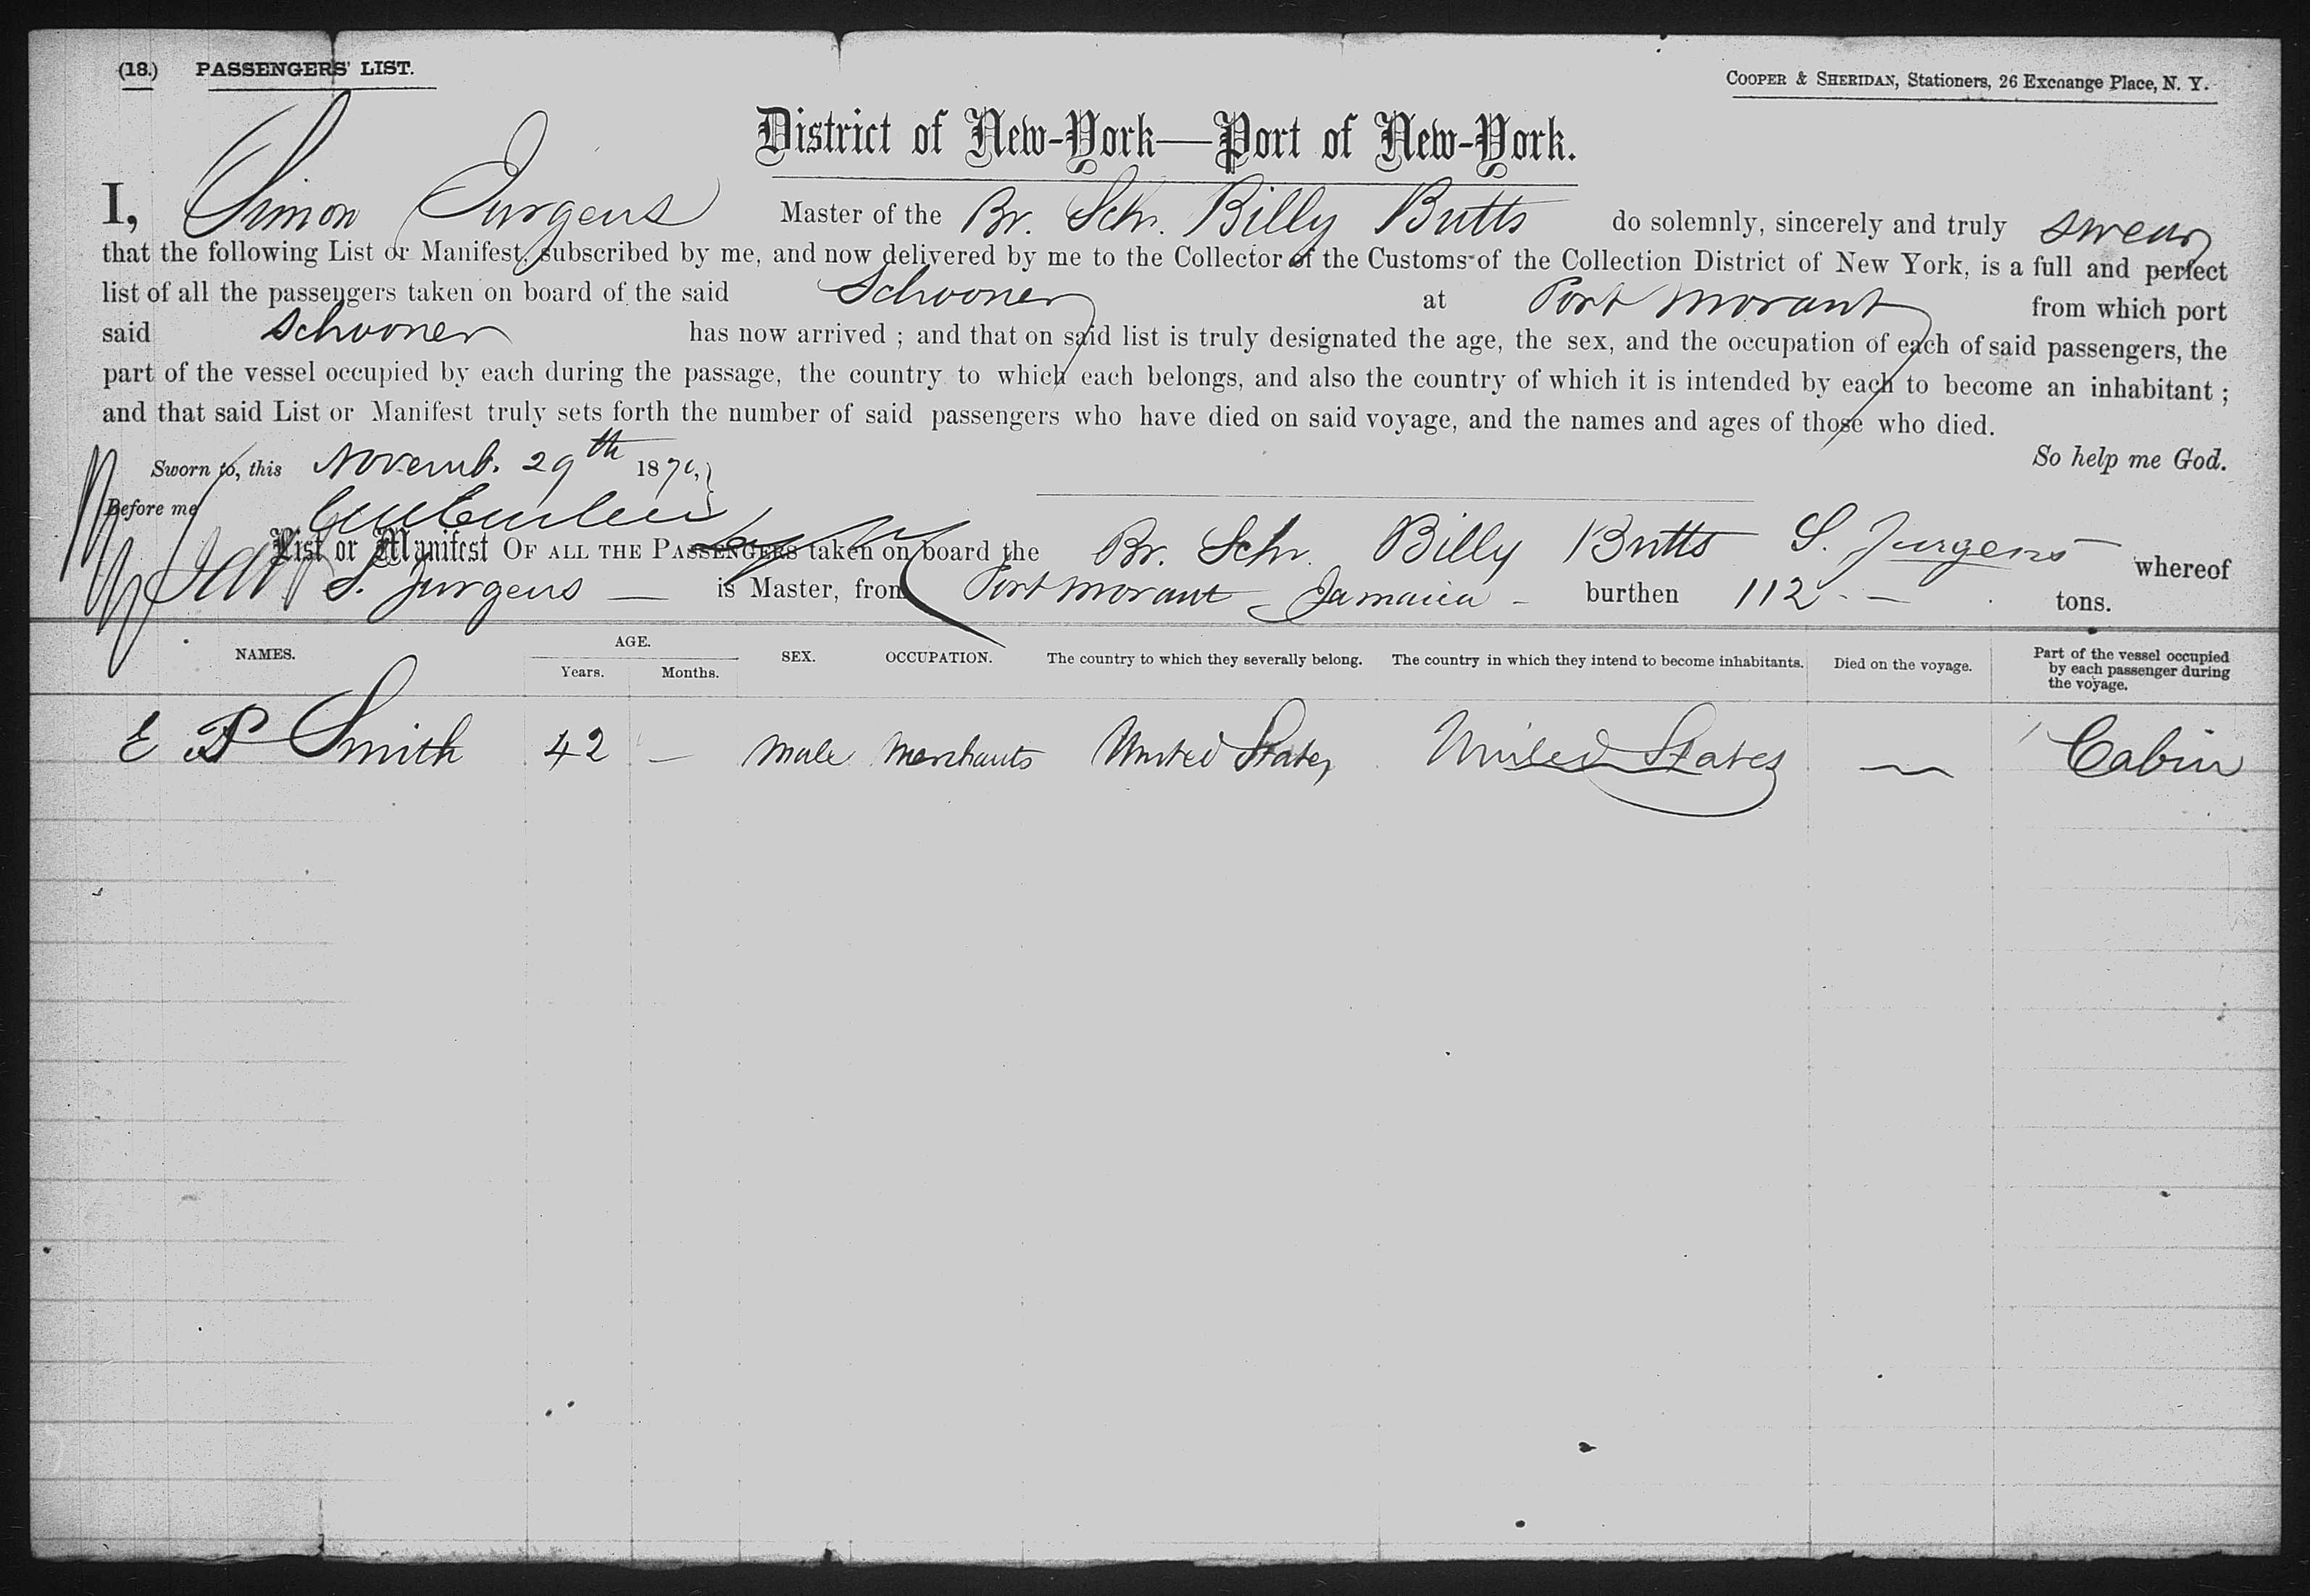 (18.) PASSENGERS' LIST.
COOPER & SHERIDAN, Stationers, 26 Exchange Place, N. Y.
District of New-York—Port of New-York.
I, Simon Jurgens Master of the Br. Schr. Billy Butts do solemnly, sincerely and truly swear
that the following List or Manifest, subscribed by me, and now delivered by me to the Collector of the Customs of the Collection District of New York, is a full and perfect
list of all the passengers taken on board of the said Schooner at Port Morant from which port
said Schooner has now arrived ; and that on said list is truly designated the age, the sex, and the occupation of each of said passengers, the
part of the vessel occupied by each during the passage, the country to which each belongs, and also the country of which it is intended by each to become an inhabitant ;
and that said List or Manifest truly sets forth the number of said passengers who have died on said voyage, and the names and ages of those who died.
So help me God.
Sworn to, this Novemb. 29th 187
Before me
List or Manifest OF ALL THE PASSENGERS taken on board the Br. Schr. Billy Butts S. Jurgens whereof
S. Jurgens — is Master, from Port Morant Jamaica - burthen 112 - — tons.
NAMES. AGE. Years. Months. SEX. OCCUPATION. The country to which they severally belong. The country in which they intend to become inhabitants. Died on the voyage. Part of the vessel occupied by each passenger during the voyage.
E P Smith 42 — Male Merchants United States United States — Cabin